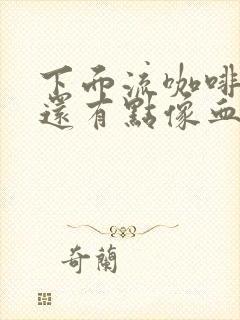 下而流咖啡
還有點像血
奇蘭